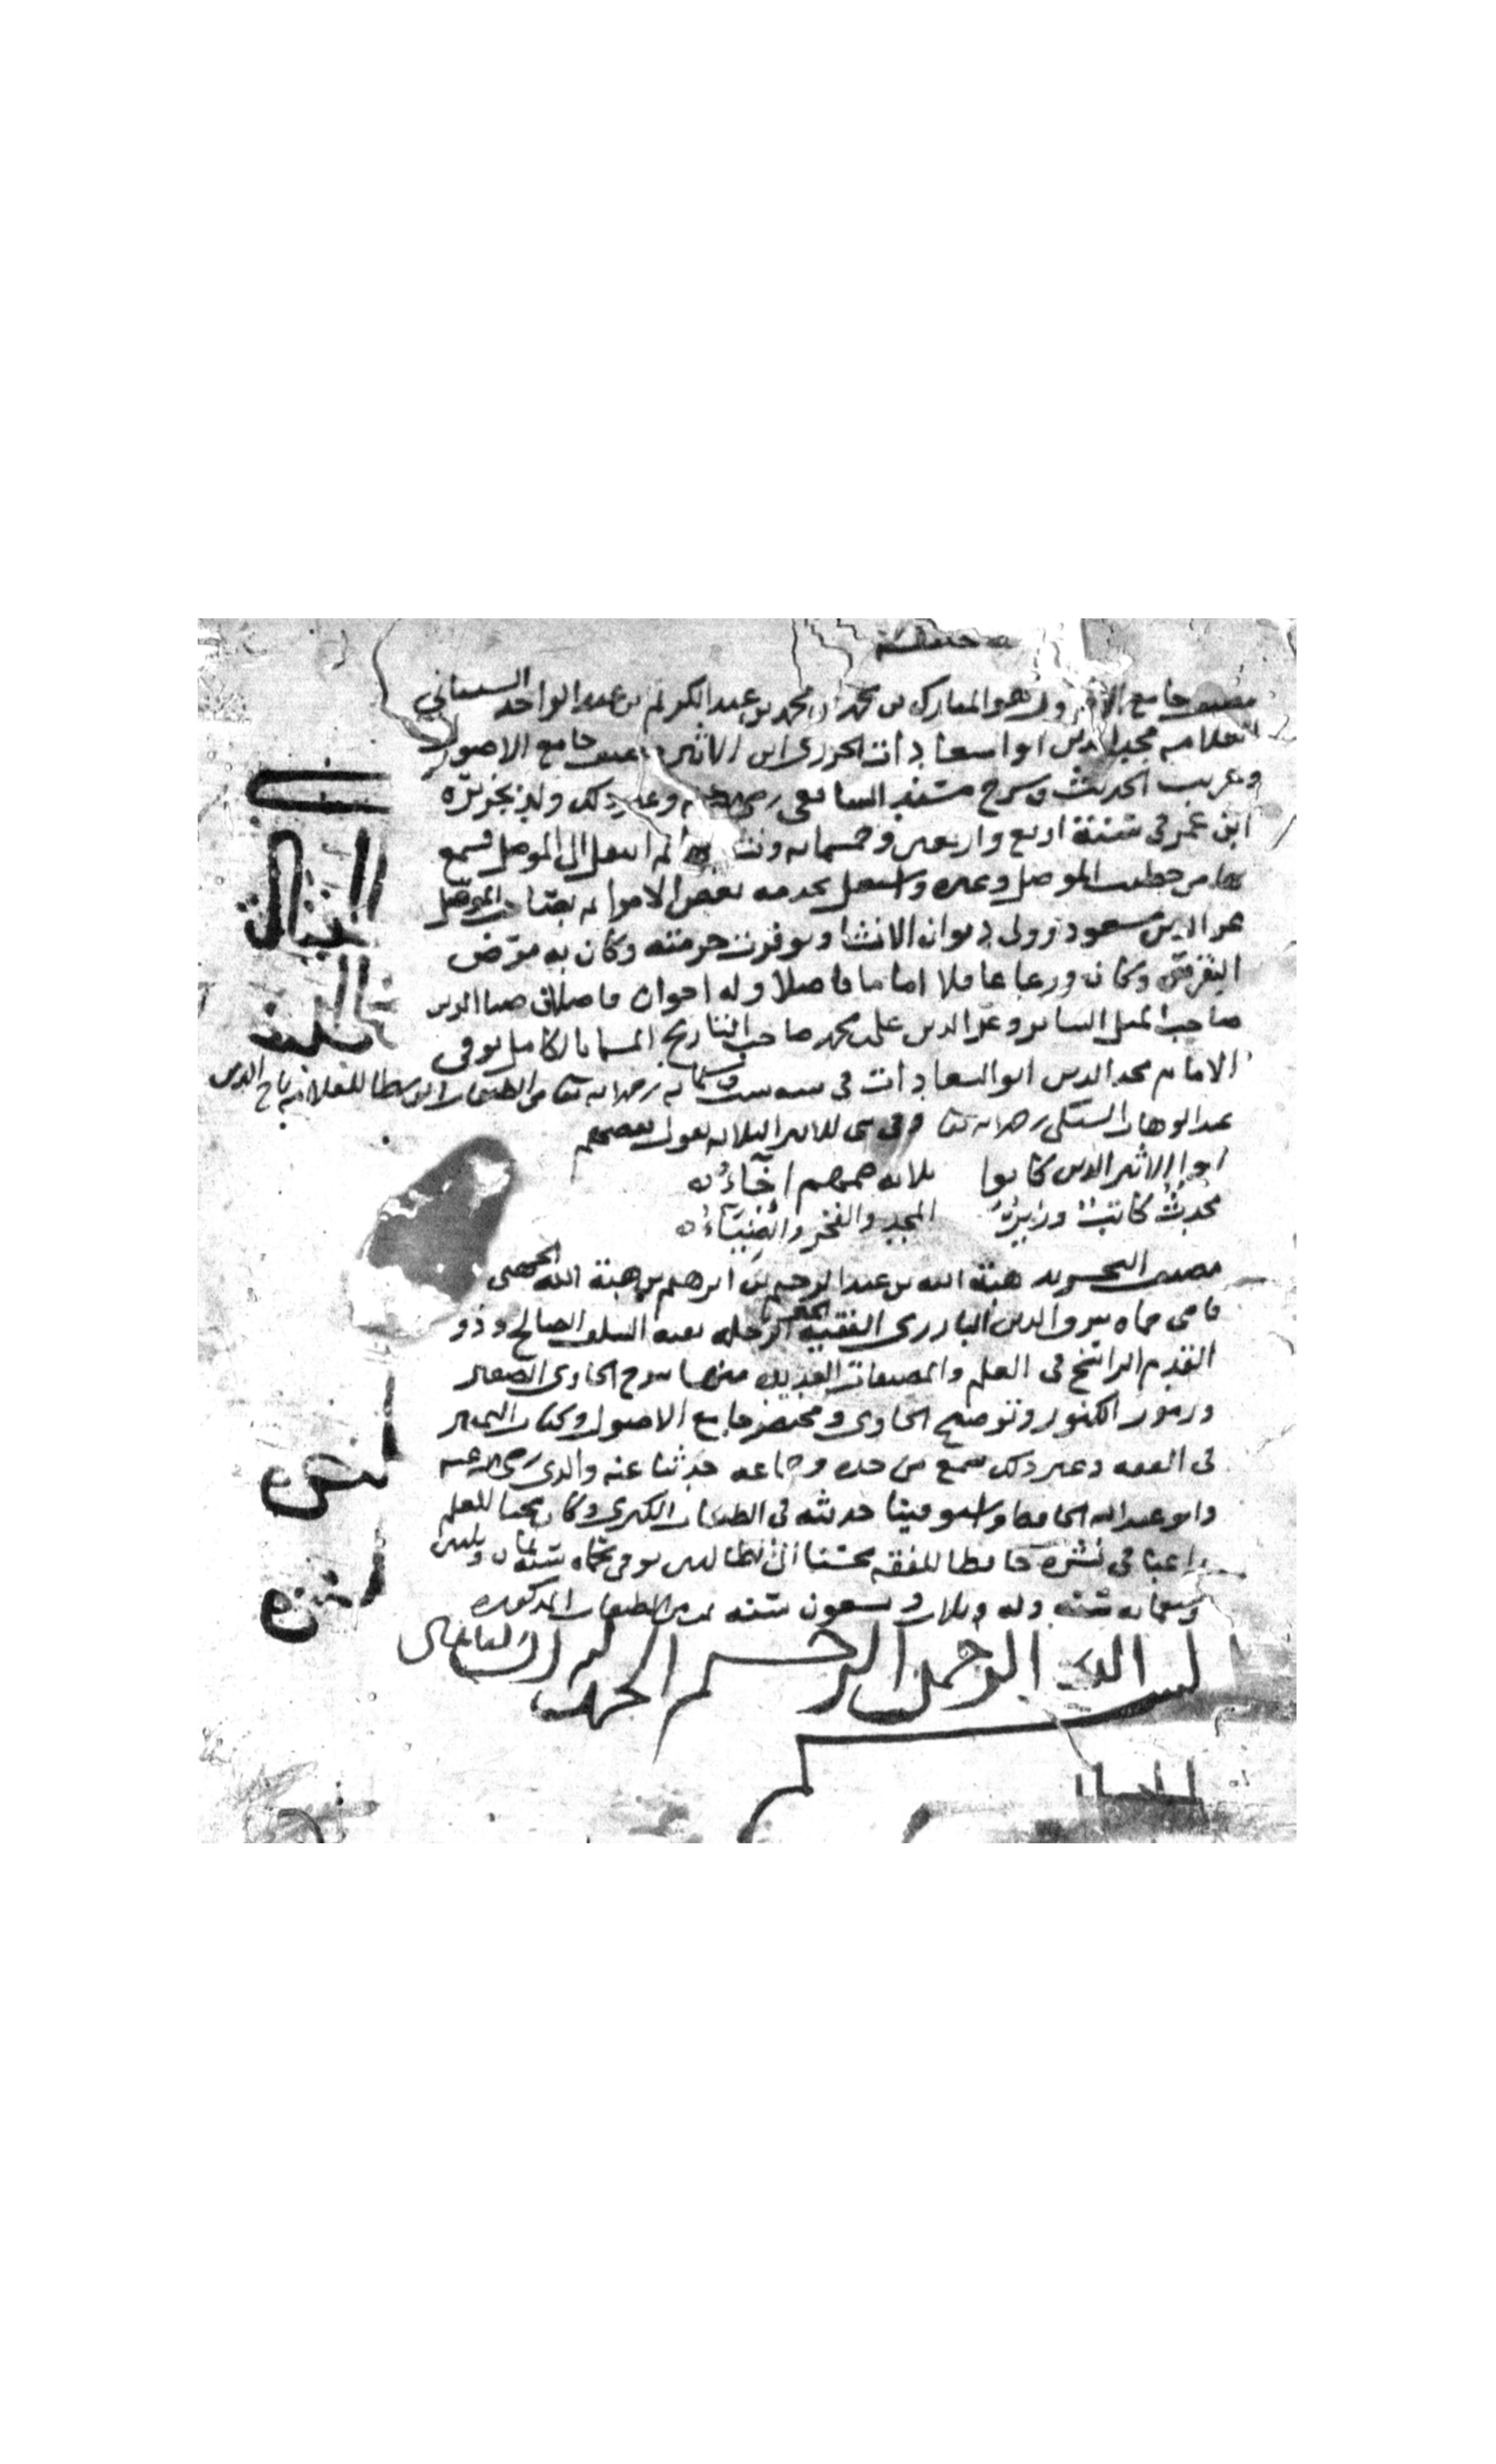 مصنف جامع الاصول هو المبارك بن محمد بن محمد بن عبد الكريم بن عبد الواحد الشيباني
العلامه مجد الدين ابو السعادات الجزري ابن الاثير مصنف جامع الاصول
وغريب الحديث وشرح مسند الشافعي رضي الله عنه وغير ذلك ولد بجزيرة
ابن عمر في سنة اربع واربعين وخمسمايه ونشا بها ثم انتقل الى الموصل فسمع
بها من خطيب الموصل وغيره واشتغل بخدمه بعض الامرا ثم بصاحب الموصل
عز الدين مسعود وولي ديوان الانشا وتوفرت حرمته وكان به مرض
النقرس وكان ورعا عاقلا اماما فاضلا وله اخوان فاضلان ضيا الدين
صاحب المثل الساير وعز الدين علي بن محمد صاحب التاريخ المسما بالكامل توفي
الامام مجد الدين ابو السعادات في سنه ست وستمايه رحمه الله تعا من الطبقات الوسطا للعلامه تاج الدين
عبد الوهاب السبكي رحمه الله تعا وفي بني الاثير الثلاثه يقول بعضهم
بنوا الاثير الذين كانوا ثلاثه همهم
محدث كاتب وزير المجد والفخر
مصنف التجريد هبة الله بن عبد الرحيم بن ابرهيم بن هبة الله الجهني
قاضي حماه شرف الدين البارزي الفقيه الرحله بقيه السلف الصالح وذو
القدم الراسخ في العلم والمصنفات العديده منها شرح الحاوي الصغير
ورموز الكنوز وتوضيح الحاوي ومختصر جامع الاصول وكتاب التمييز
في الفقه وغير ذلك سمع من جده وجماعه حدثنا عنه والدي رضي الله عنه
وابو عبد الله الحافظ حديثه في الطبقات الكبرى وكان محبا للعلم
راغبا في نشره حافظا للفقه محسنا الى الطالبين توفي بحماه سنة ثمان وثلثين
وسبعمايه وله ثلاث وتسعون سنه من الطبقات المذكوره
بسم الله الرحمن الرحيم الحمد لله رب العالمين